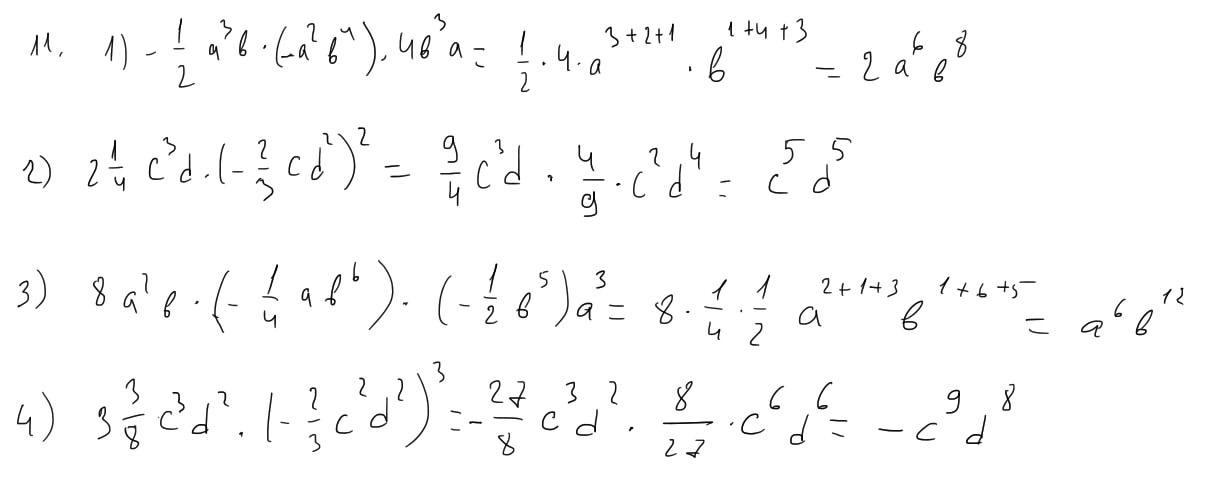 11. 1) -\frac{1}{2} a^3 b \cdot (-a^2 b^4) \cdot 4b^3 a = \frac{1}{2} \cdot 4 \cdot a^{3+2+1} \cdot b^{1+4+3} = 2 a^6 b^8
2) 2\frac{1}{4} c^3 d \cdot (-\frac{2}{3} c d^2)^2 = \frac{9}{4} c^3 d \cdot \frac{4}{9} \cdot c^2 d^4 = c^5 d^5
3) 8 a^2 b \cdot (-\frac{1}{4} a b^6) \cdot (-\frac{1}{2} b^5) a^3 = 8 \cdot \frac{1}{4} \cdot \frac{1}{2} a^{2+1+3} b^{1+6+5} = a^6 b^{12}
4) 3\frac{3}{8} c^3 d^2 \cdot (-\frac{2}{3} c^2 d^2)^3 = -\frac{27}{8} c^3 d^2 \cdot \frac{8}{27} \cdot c^6 d^6 = -c^9 d^8